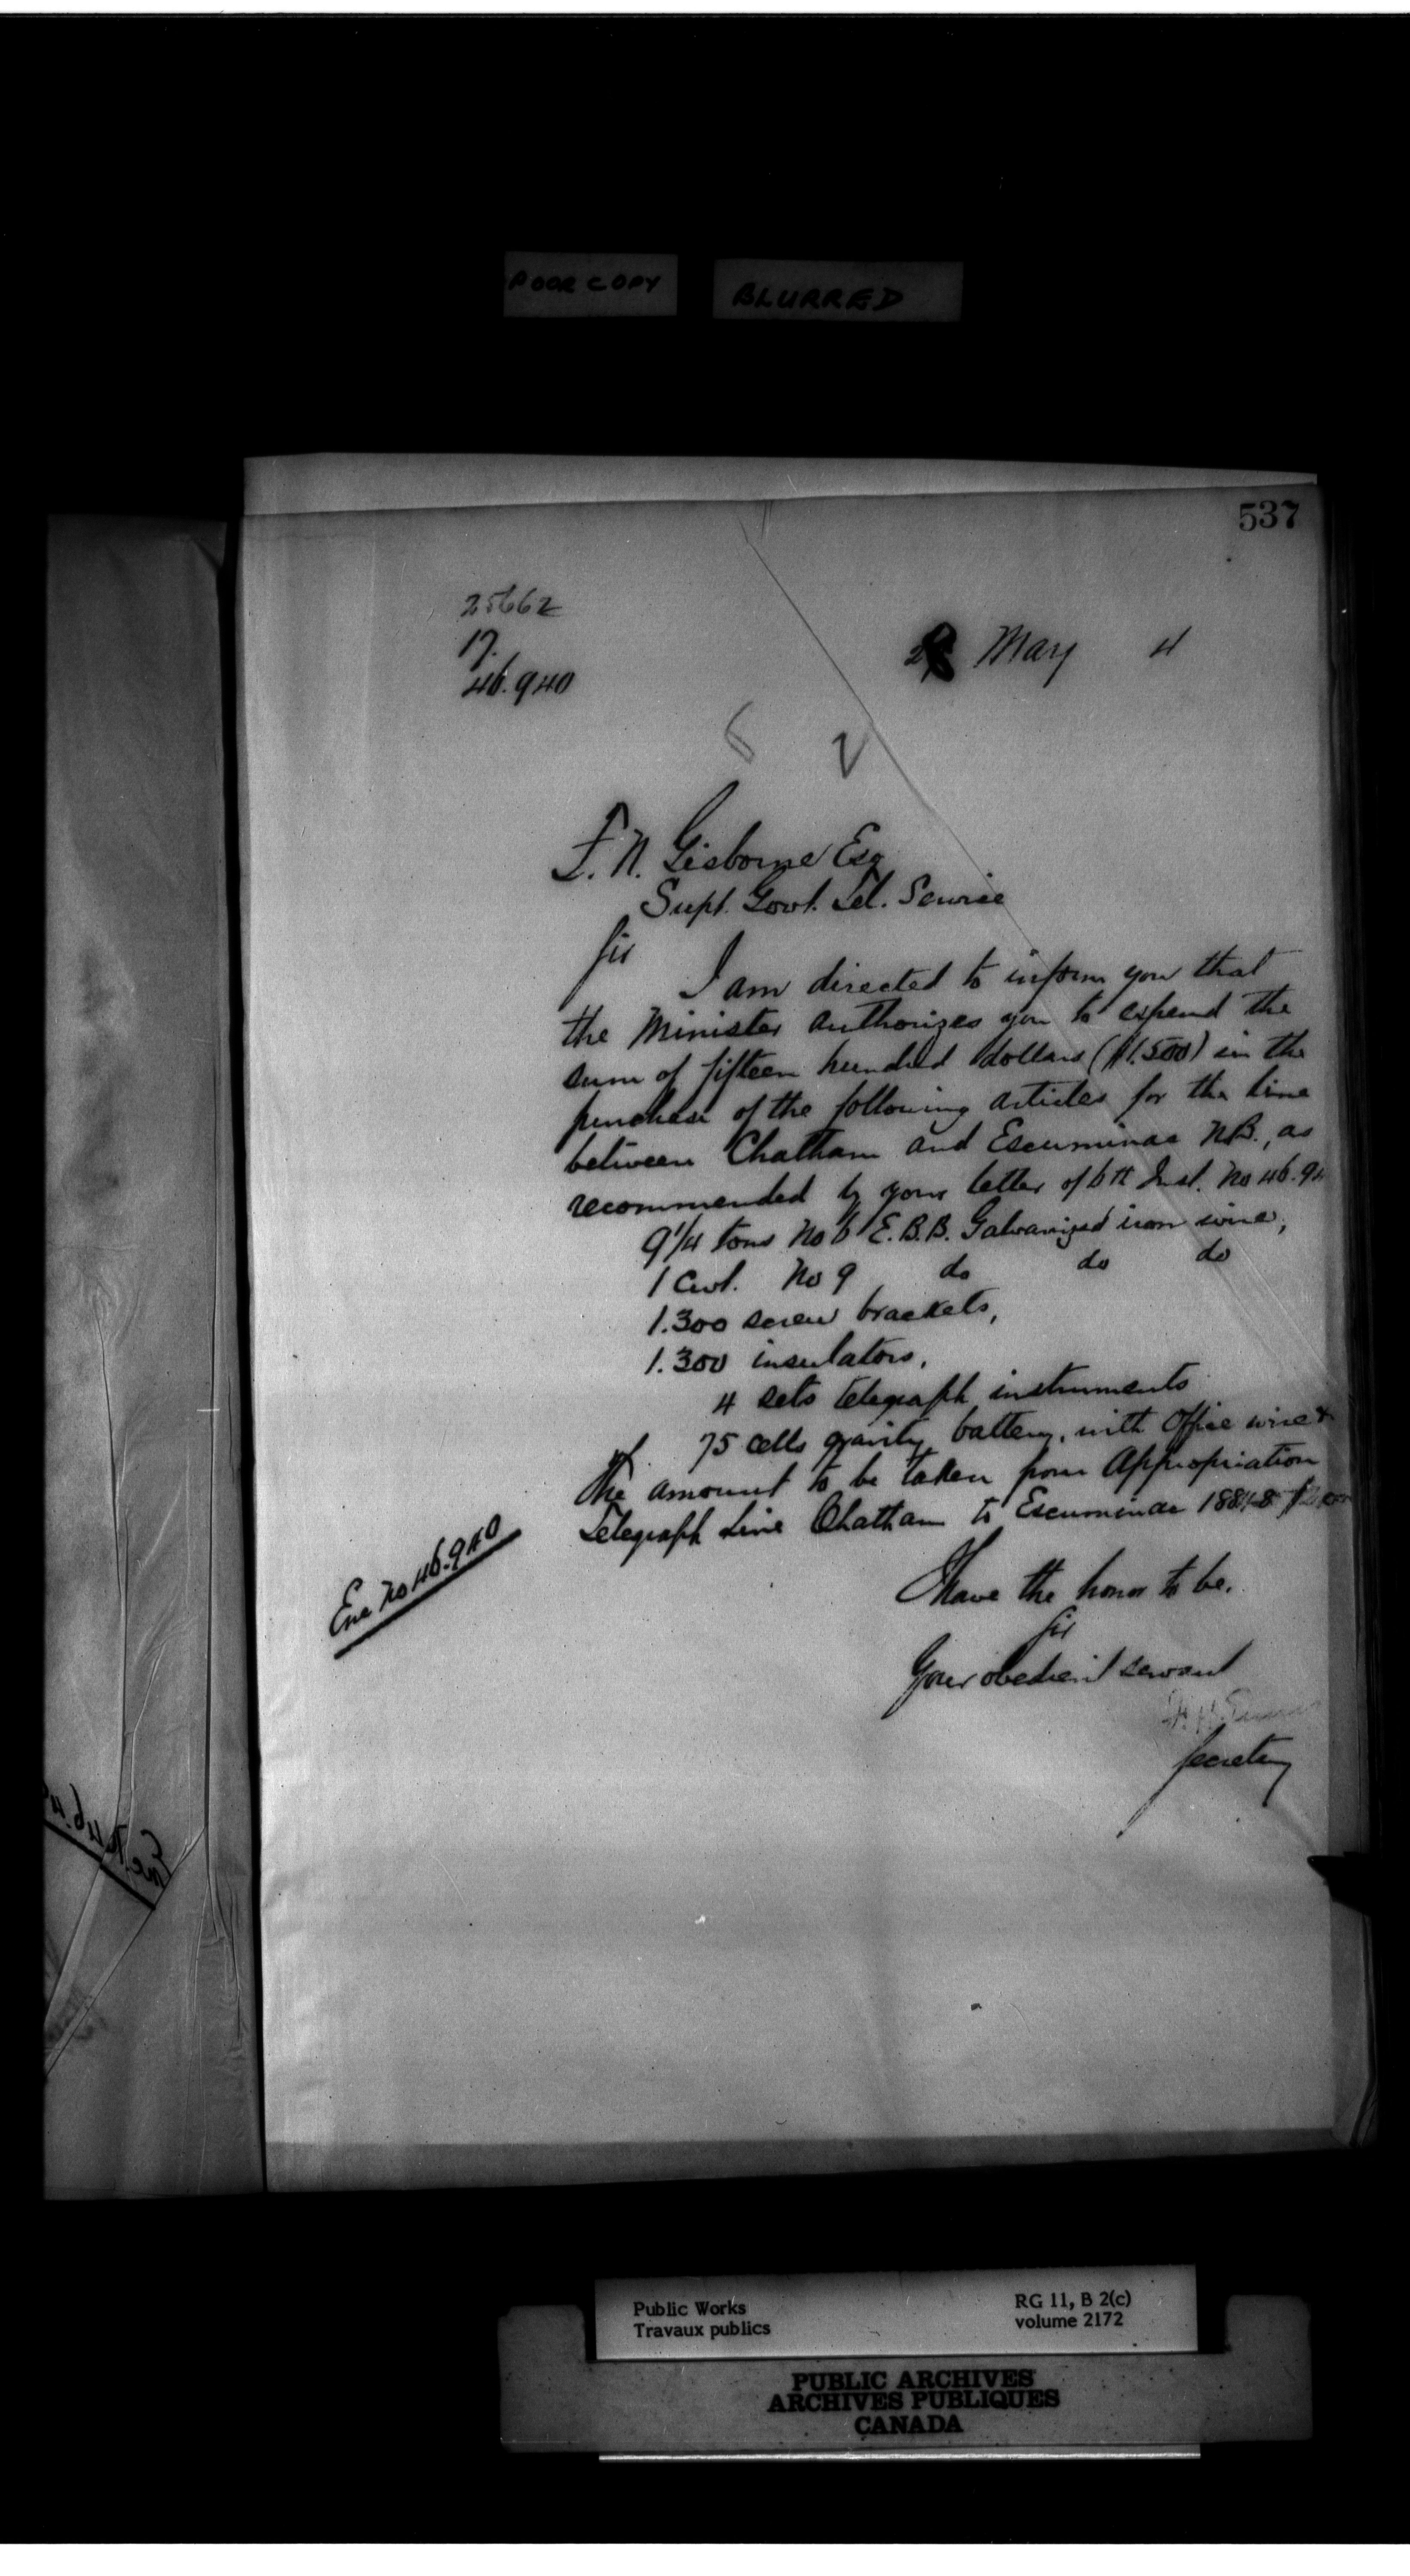 POOR COPY BLURRED
537
25662
17.
46.940
May 4
6 V
F. N. Gisborne Esq
Supt. Govt. Tel. Service
Sir
I am directed to inform you that
the Minister authorizes you to expend the
sum of fifteen hundred dollars ($1.500) in the
purchase of the following articles for the line
between Chatham and Escuminac N.B., as
recommended by your letter of 6th Inst. No 46.94
9 1/4 tons No 6 E.B.B. Galvanized iron wire,
1 Cwt. No 9 do do do
1.300 screw brackets,
1.300 insulators,
4 sets telegraph instruments
75 cells gravity battery, with Office wire &
The amount to be taken from Appropriation
Telegraph Line Chatham to Escuminac
Enc No 46.940
I have the honor to be,
Sir
Your obedient servant
Secretary
Public Works
Travaux publics
RG 11, B 2(c)
volume 2172
PUBLIC ARCHIVES
ARCHIVES PUBLIQUES
CANADA